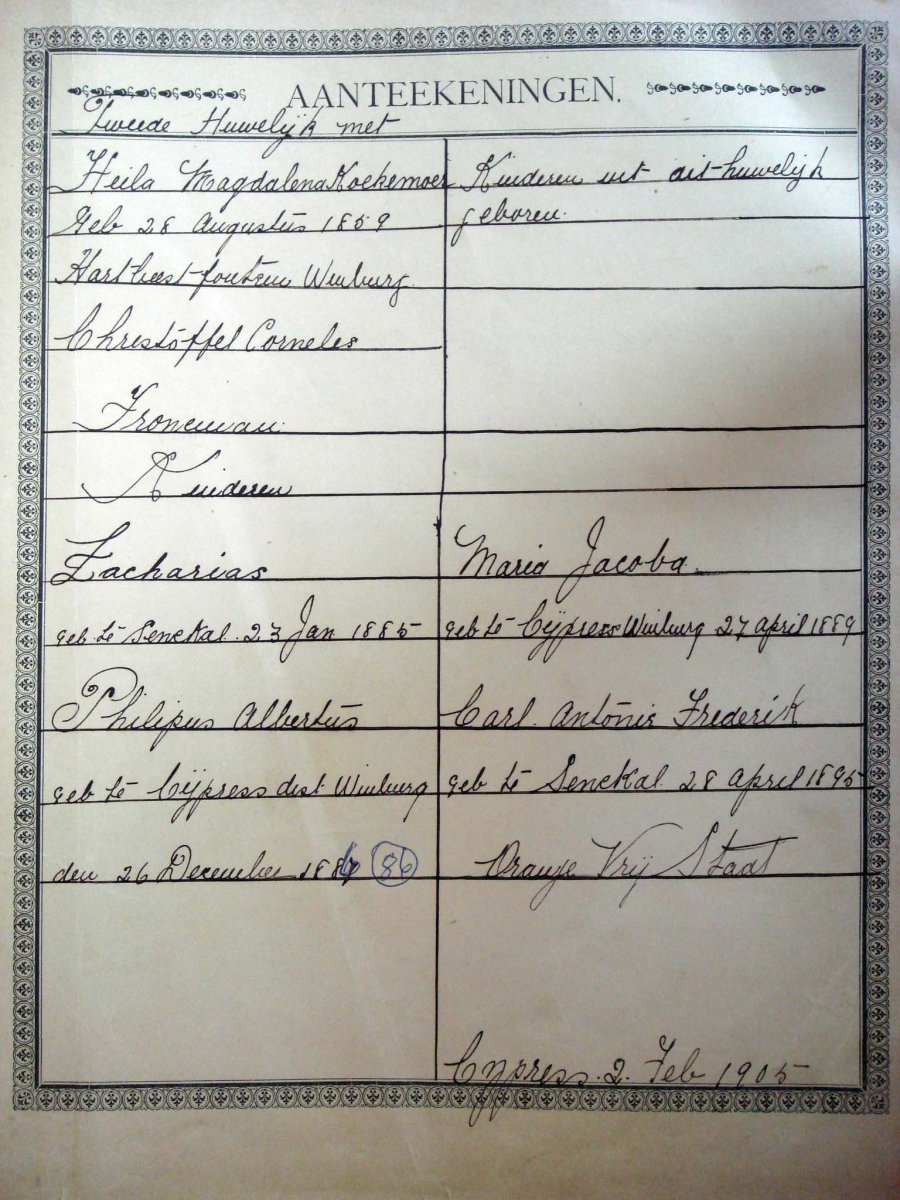 AANTEEKENINGEN.
Tweede Huwelijk met
Heila Magdalena Koekemoer
Geb 28 Augustus 1859
Hartbeestfontein Winburg.
Chrestoffel Corneles
Froneman
Kinderen
Zacharias
geb te Senekal 23 Jan 1885
Philipus Albertus
geb te Cÿpress dist Winburg
den 26 December 1886 86
Kinderen uit dit huwelijk
geboren.
Maria Jacoba
geb te Cÿpress Winburg 27 april 1889
Carl Antonie Frederik
geb te Senekal 28 april 1895
Oranje Vrij Staat
Cypress 2 Feb 1905